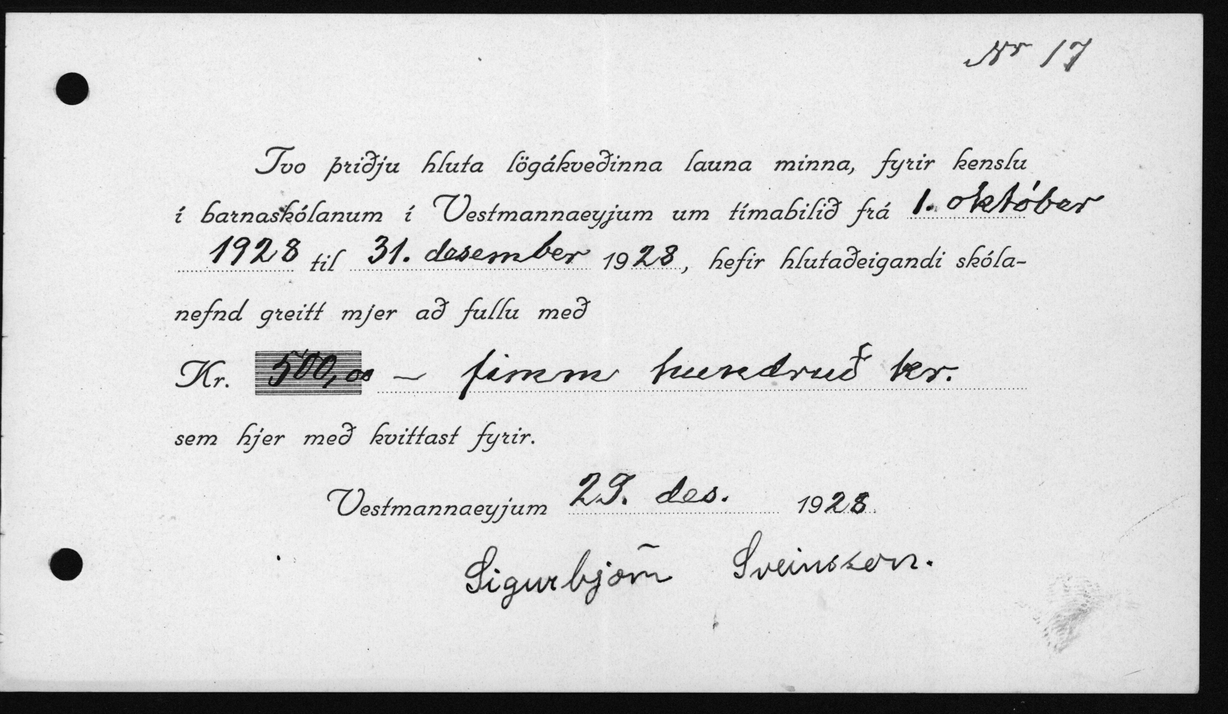 Nr 17
Tvo þriðju hluta lögákveðinna launa minna, fyrir kenslu
í barnaskólanum í Vestmannaeyjum um tímabilið frá 1. október
1928 til 31. desember 1928, hefir hlutaðeigandi skóla-
nefnd greitt mjer að fullu með
Kr. 500,00 — fimm hundruð kr.
sem hjer með kvittast fyrir.
Vestmannaeyjum 29. des. 1928.
Sigurbjörn Sveinsson.